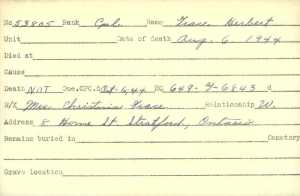 No 53805 Rank Cpl. Name Trace, Herbert
Unit Date of death Aug. 6 1944
Died at
Cause
Death NOT Doc.CFC.5 Oct 6/44 HQ 649-T-6843 d
N/K Mrs Christina Trace Relationship W.
Address 8 Home St Stratford, Ontario
Remains buried in Cemetery
Grave Location